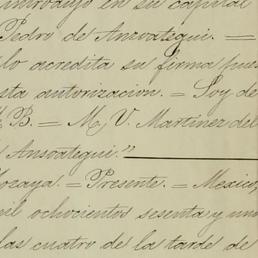 introdujo en su capital
Pedro de Ansoategui. =
lo acredita su firma pues
sta autorizacion. = Soy de
B. = M. V. Martinez del
Ansoategui."
ozaya. = Presente. = Mexico,
mil ochocientos sesenta y uno
las cuatro de la tarde de